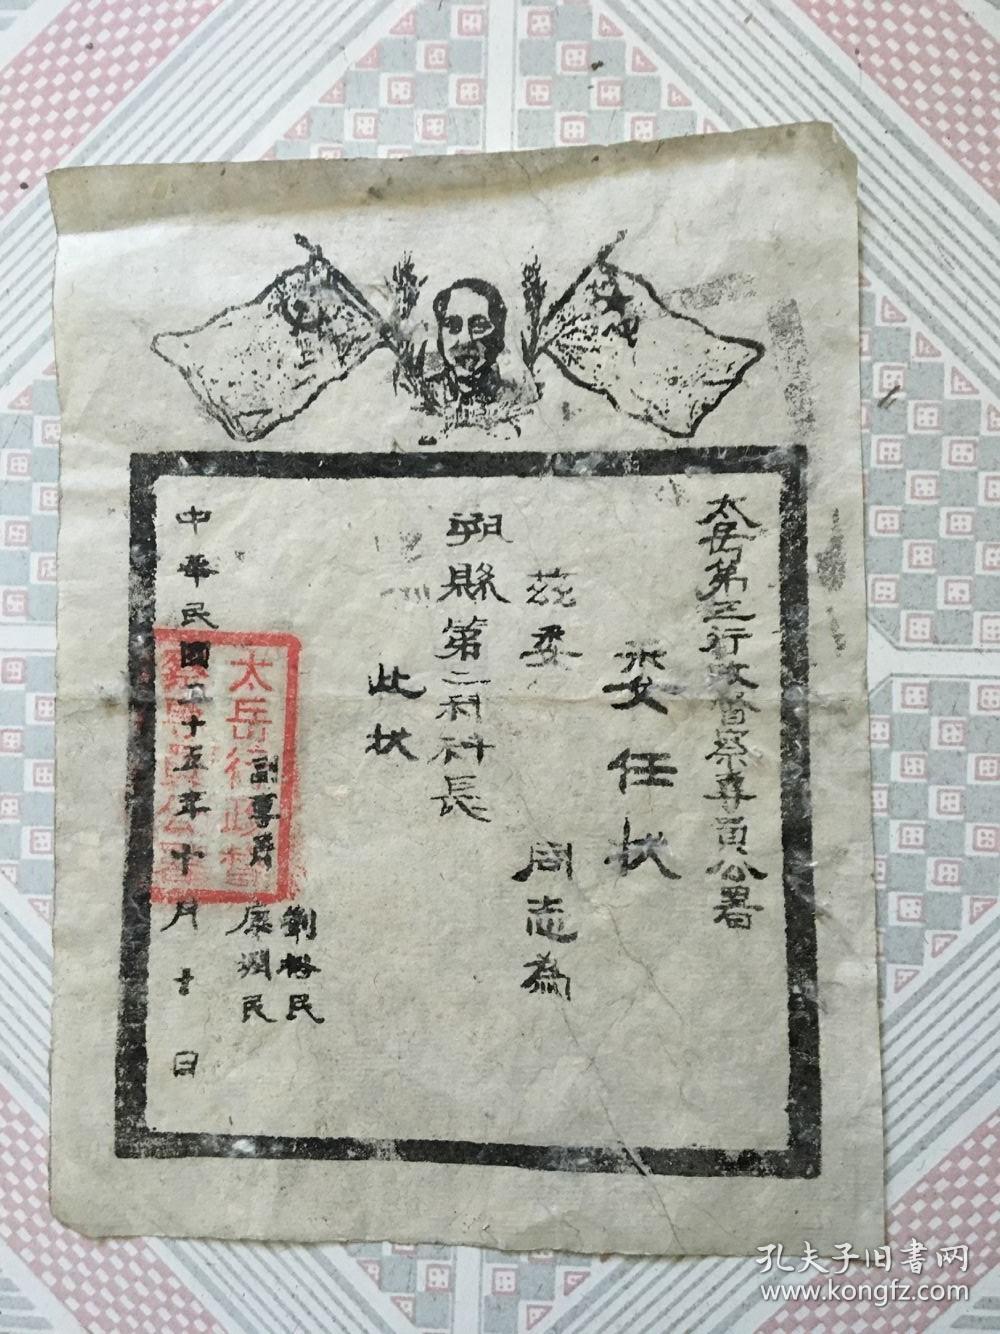 太岳第三行政督察專員公署
委任狀
茲委 周志為
朔縣第二科科長
此狀
副專員 劉裕民
康潤民
中華民國三十五年十月十日
太岳行政督
察專員公署
孔夫子旧書网
www.kongfz.com